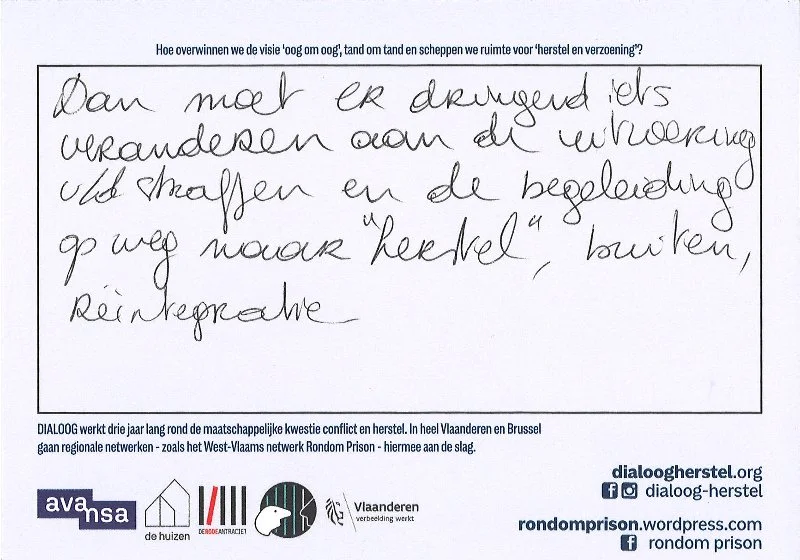 Hoe overwinnen we de visie 'oog om oog', tand om tand en scheppen we ruimte voor 'herstel en verzoening'?
Dan moet er dringend iets
veranderen aan de uitvoering
v/d straffen en de begeleiding
op weg naar "herstel", buiten,
reïntegratie
DIALOOG werkt drie jaar lang rond de maatschappelijke kwestie conflict en herstel. In heel Vlaanderen en Brussel
gaan regionale netwerken - zoals het West-Vlaams netwerk Rondom Prison - hiermee aan de slag.
dialoogherstel.org
dialoog-herstel
rondomprison.wordpress.com
rondom prison
avansa
de huizen
DERODEANTRACIET
Vlaanderen
verbeelding werkt